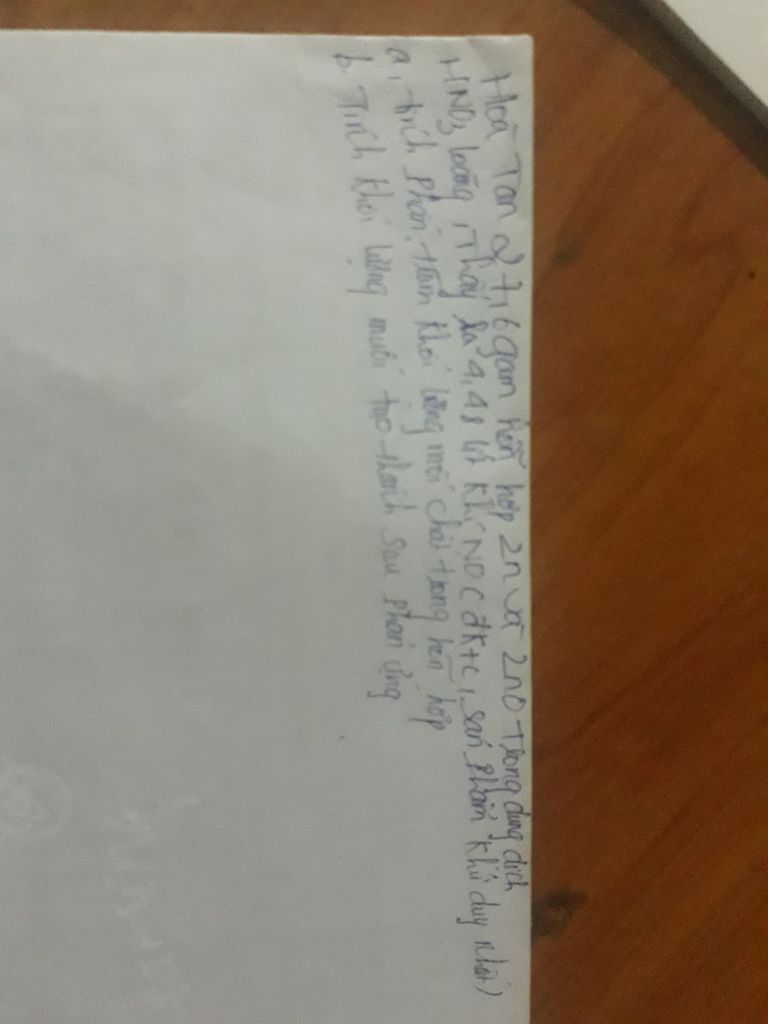 Hoà Tan 27,6 gam hỗn hợp Zn và ZnO Trong dung dịch
HNO3 loãng, Thấy có 4,48 lít khí NO (đktc, sản phẩm khử duy nhất)
a, tính phần trăm khối lượng mỗi chất trong hỗn hợp
b. Tính khối lượng muối tạo thành sau phản ứng